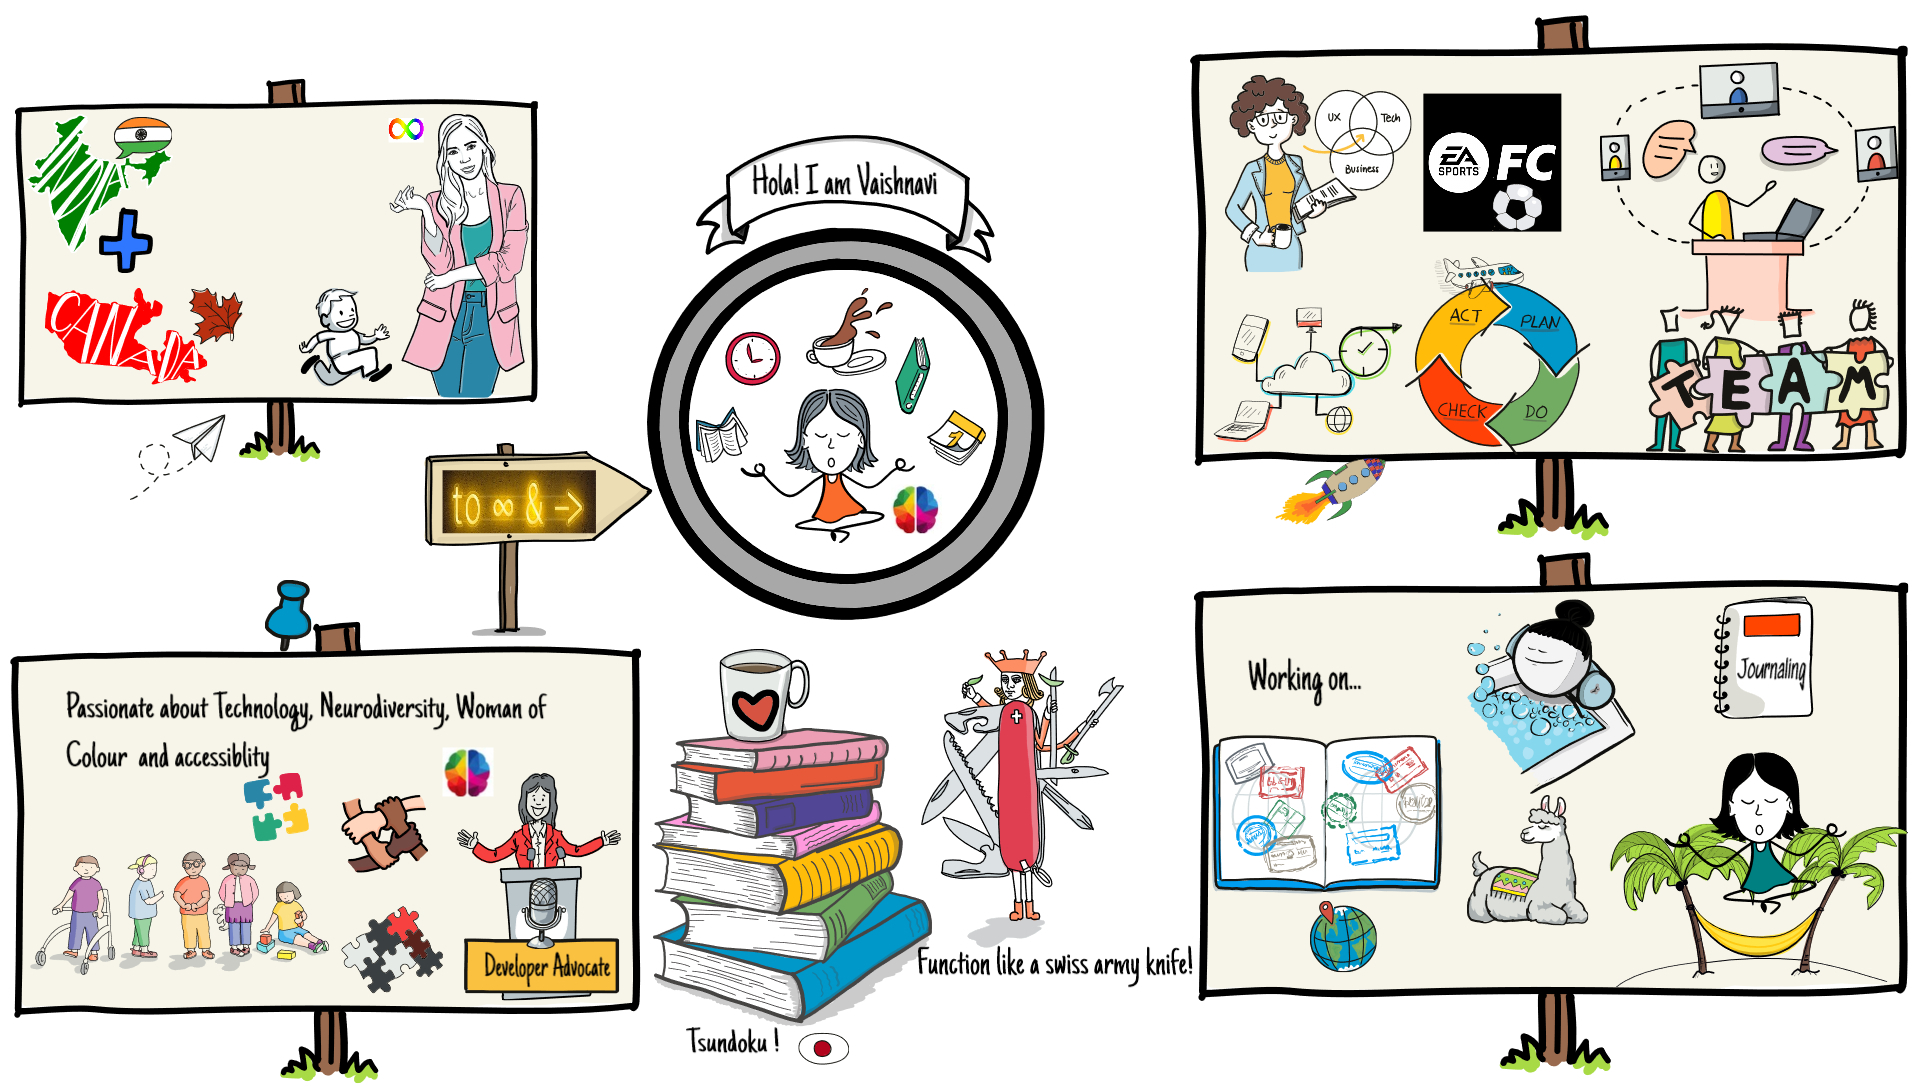 INDIA
CANADA
Hola! I am Vaishnavi
to ∞ & ->
UX
Tech
Business
EA
SPORTS
FC
ACT
PLAN
CHECK
DO
TEAM
Passionate about Technology, Neurodiversity, Woman of
Colour and accessiblity
Developer Advocate
Tsundoku !
Function like a swiss army knife!
Working on...
Journaling